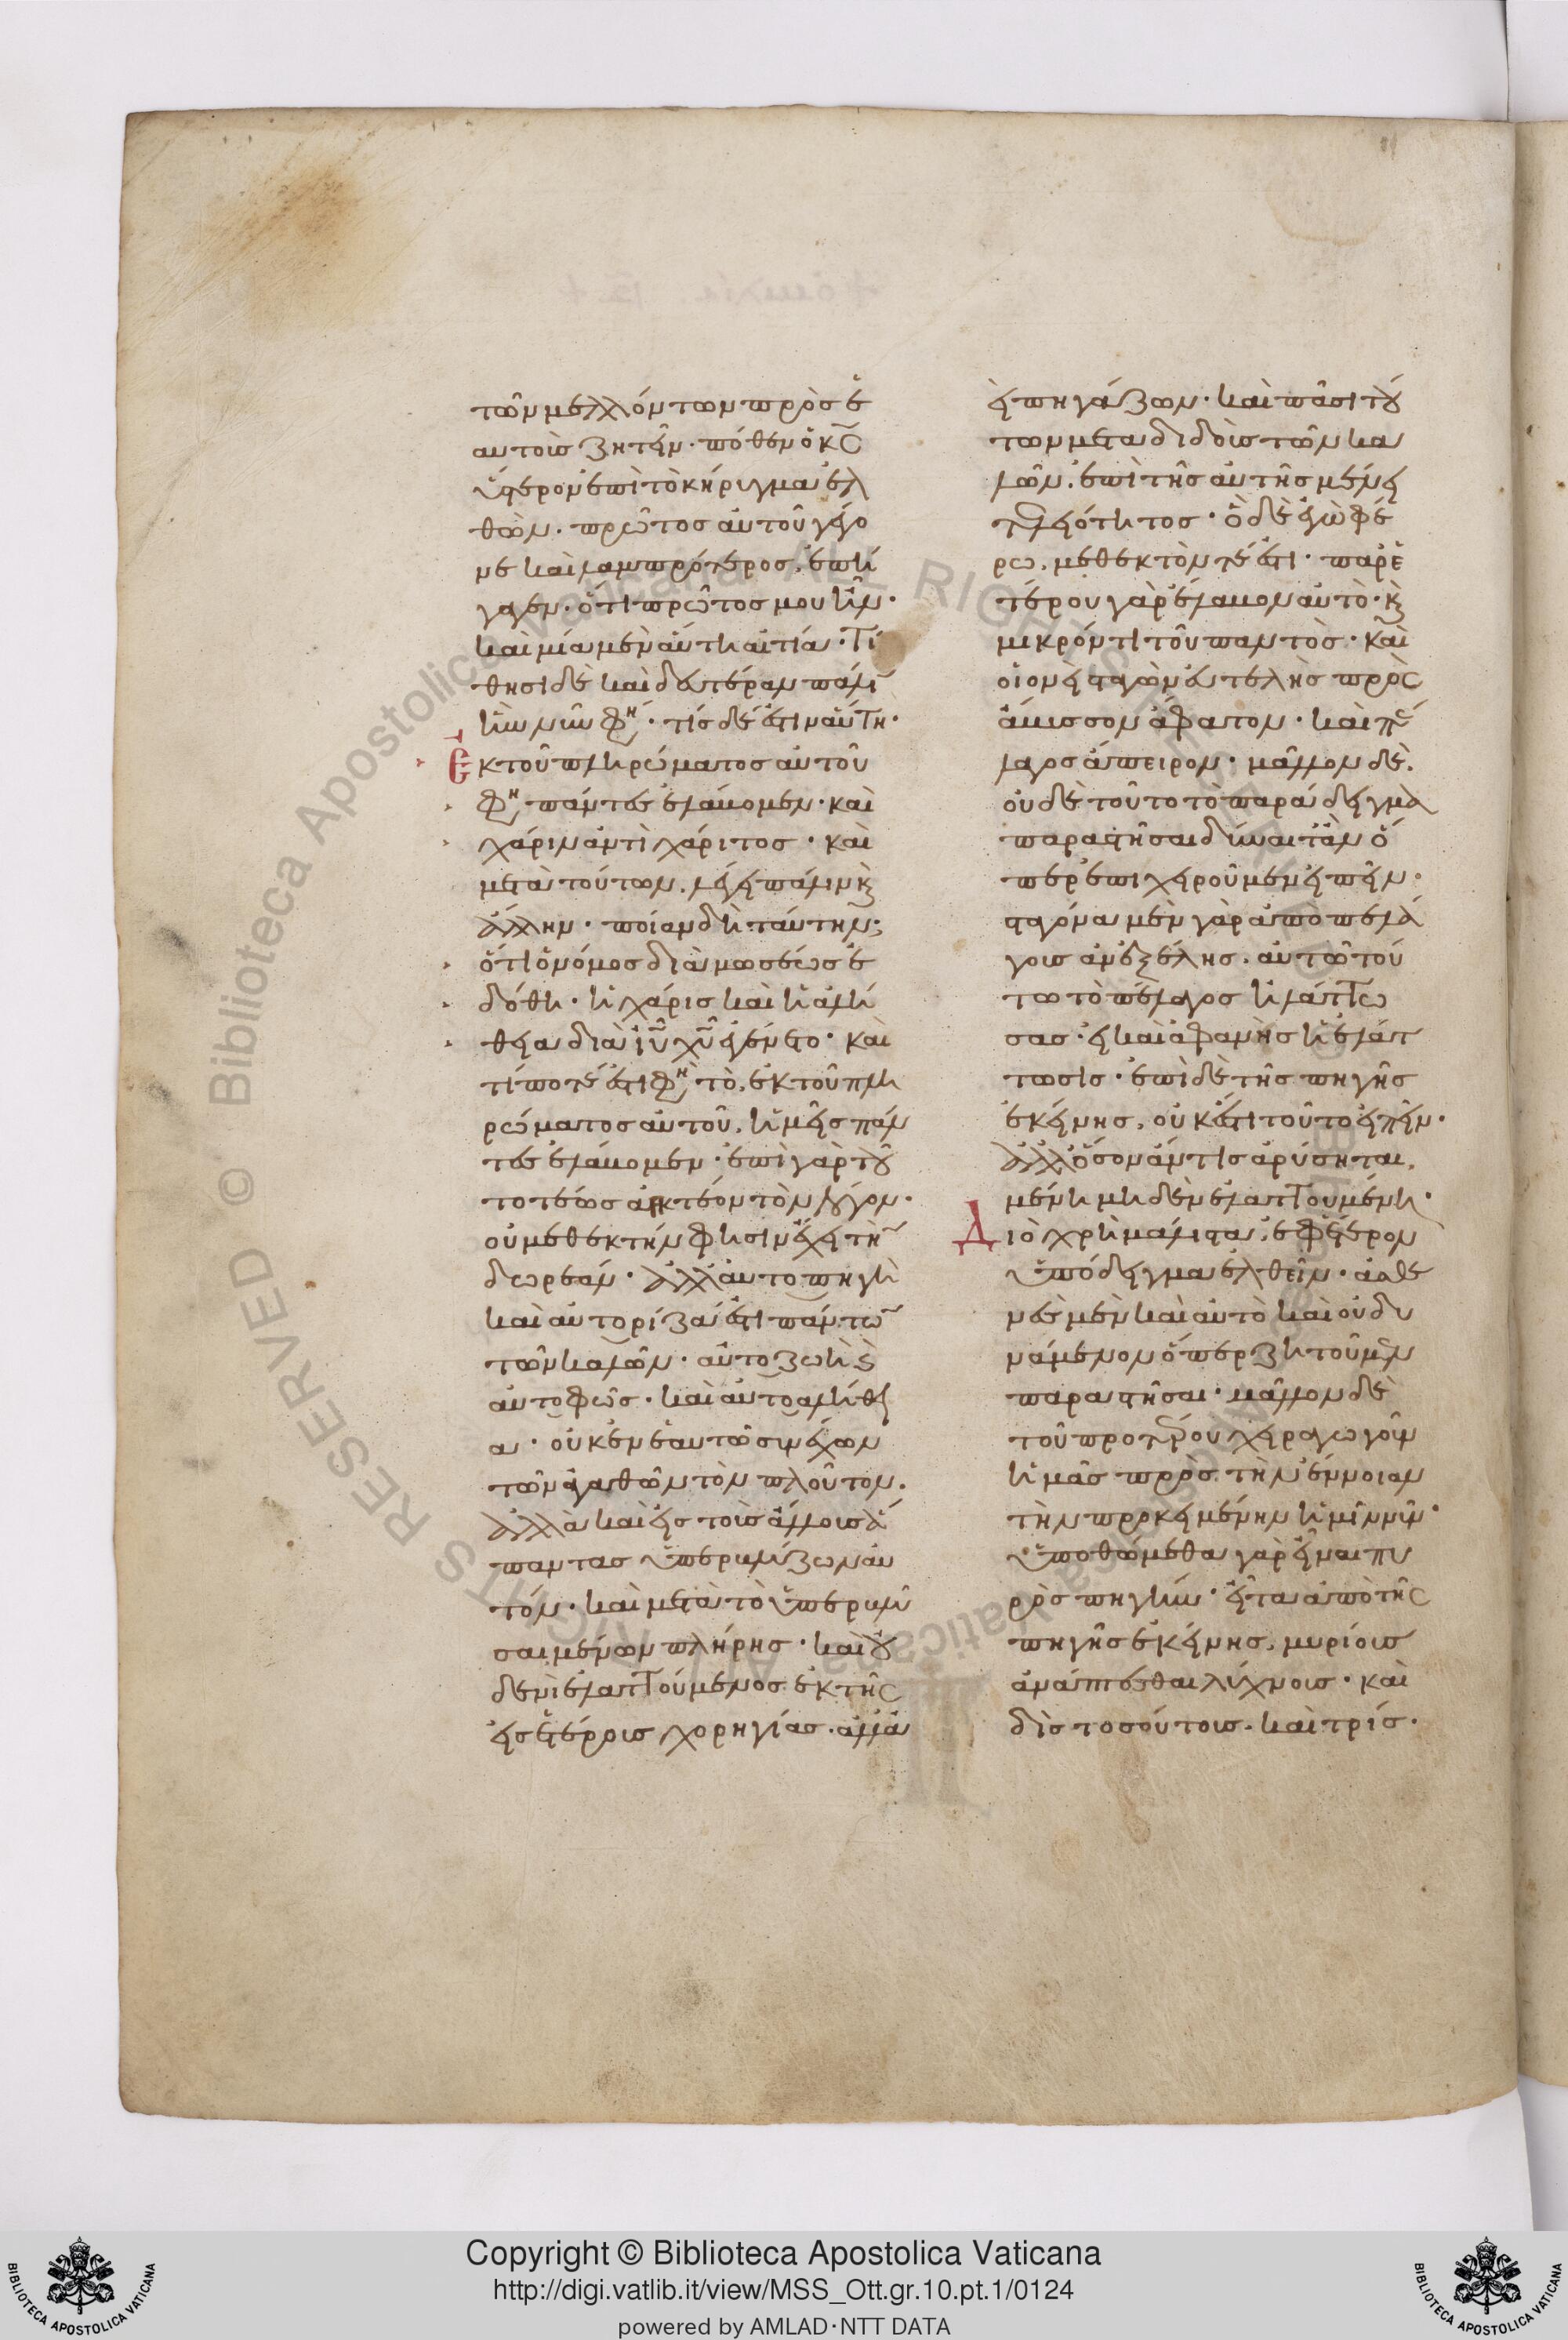 τῶν μελλόντων πρὸς ἑ
αυτοὺς ζητεῖν· πόθεν ὁ κς
ὕστερον ἐπὶ τὸ κήρυγμα ἐλ
θὼν. πρῶτος αὐτοῦ γέγο
νε καὶ λαμπρότερος, ἐπή
γαγεν· ὅτι πρῶτός μου ἦν·
καὶ μία μὲν αὕτη αἰτία· τί
θησι δὲ καὶ δευτέραν πάλι
ἣν νῦν φη· τίς δέ ἐστιν αὕτη·
Ἐκ τοῦ πληρώματος αὐτοῦ
φη πάντες ἐλάβομεν· καὶ
χάριν ἀντὶ χάριτος· καὶ
μετὰ τούτων, λέγει πάλιν κ
ἄλλην· ποίαν δὴ ταύτην;
ὅτι ὁ νόμος διὰ μωσέως ἐ
δόθη· ἡ χάρις καὶ ἡ ἀλή
θεια διὰ ιυ χυ ἐγένετο· καὶ
τί ποτέ ἐστι φη τὸ, ἐκ τοῦ πλη
ρώματος αὐτοῦ, ἡμεῖς πάν
τες ἐλάβομεν· ἐπὶ γὰρ τού
το τέως ἀκτέον τὸν λόγον·
οὐ μεθεκτὴν φησιν ἔχει τὴ
δωρεάν· ἀλλ' αὐτοπηγὴ
καὶ αὐτορίζά ἐστι πάντω
τῶν καλῶν· αὐτοζωὴ κ
αὐτοφῶς· καὶ αὐτοαλήθει
α· οὐκ ἐν ἑαυτῶ συνέχων
τῶν ἀγαθῶν τὸν πλοῦτον.
ἀλλὰ καὶ εἰς τοὺς ἄλλους ἅ
παντας ὑπερβλύζων αὐ
τόν· καὶ μετὰ τὸ ὑπερβλύ
σαι μένων πλήρης· καὶ οὐ
δενὶ ἐλαττούμενος ἐκ τῆς
εἰς ἑτέρους χορηγίας. ἀλλὰ
ἐπηγάζων· καὶ πᾶσι τού
των μεταδιδοὺς τῶν κα
λῶν, ἐπὶ τῆς αὐτῆς μένει
τελειότητος· ὃ δὲ ἐγὼ φέ
ρω, μεθεκτόν τέ ἐστι· παρ' ἑ
τέρου γὰρ ἔλαβον αὐτὸ· κ
μικρόν τι τοῦ παντὸς· καὶ
οἱονεὶ σταγὼν εὐτελὴς πρὸς
ἄβυσσον ἄφατον· καὶ πέ
λαγος ἄπειρον· μᾶλλον δὲ.
οὐδὲ τοῦτο τὸ παράδειγμα
παραστῆσαι δύναιτ' ἂν ὅ
περ ἐπιχειροῦμεν εἰπεῖν·
σταγόνα μὲν γὰρ ἀπὸ πελά
γους ἂν ἐξέλης. αὐτῶ τού
τω τὸ πέλαγος ἠλάττω
σας· εἰ καὶ ἀφανὴς ἡ ἐλάτ
τωσις· ἐπὶ δὲ τῆς πηγῆς
ἐκείνης, οὐκ ἔστι τοῦτο εἰπεῖν·
ἀλλ' ὅσον ἄν τις ἀρύσηται,
μένη μηδὲν ἐλαττουμένη·
Διὸ χρὴ μάλιστα, ἐφ' ἕτερον
ὑπόδειγμα ἐλθεῖν· ἀσθε
νὲς μὲν καὶ αὐτὸ καὶ οὐ δυ
νάμενον ὅπερ ζητοῦμεν
παραστῆσαι· μᾶλλον δὲ
τοῦ προτέρου χειραγωγοῦν
ἡμᾶς πρὸς τὴν ἔννοιαν
τὴν προκειμένην ἡμῖν νῦν·
ὑποθώμεθα γὰρ εἶναι πυ
ρὸς πηγὴν· εἶτα ἀπὸ τῆς
πηγῆς ἐκείνης, μυρίους
ἀνάπτεσθαι λύχνους· καὶ
δὶς τοσούτους. καὶ τρίς·
Copyright © Biblioteca Apostolica Vaticana
http://digi.vatlib.it/view/MSS_Ott.gr.10.pt.1/0124
powered by AMLAD·NTT DATA